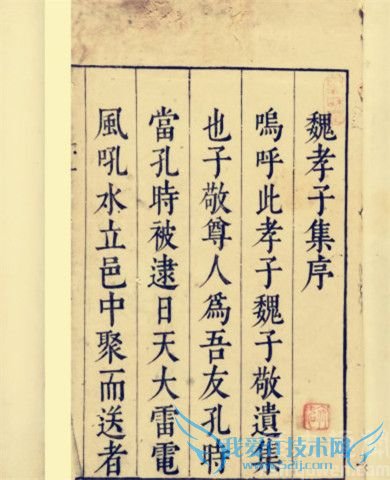 魏孝子集序
嗚呼此孝子魏子敬遺集
也子敬尊人爲吾友孔時
當孔時被逮日天大雷電
風吼水立邑中聚而送者
我爱IT技术网
www.52ij.com